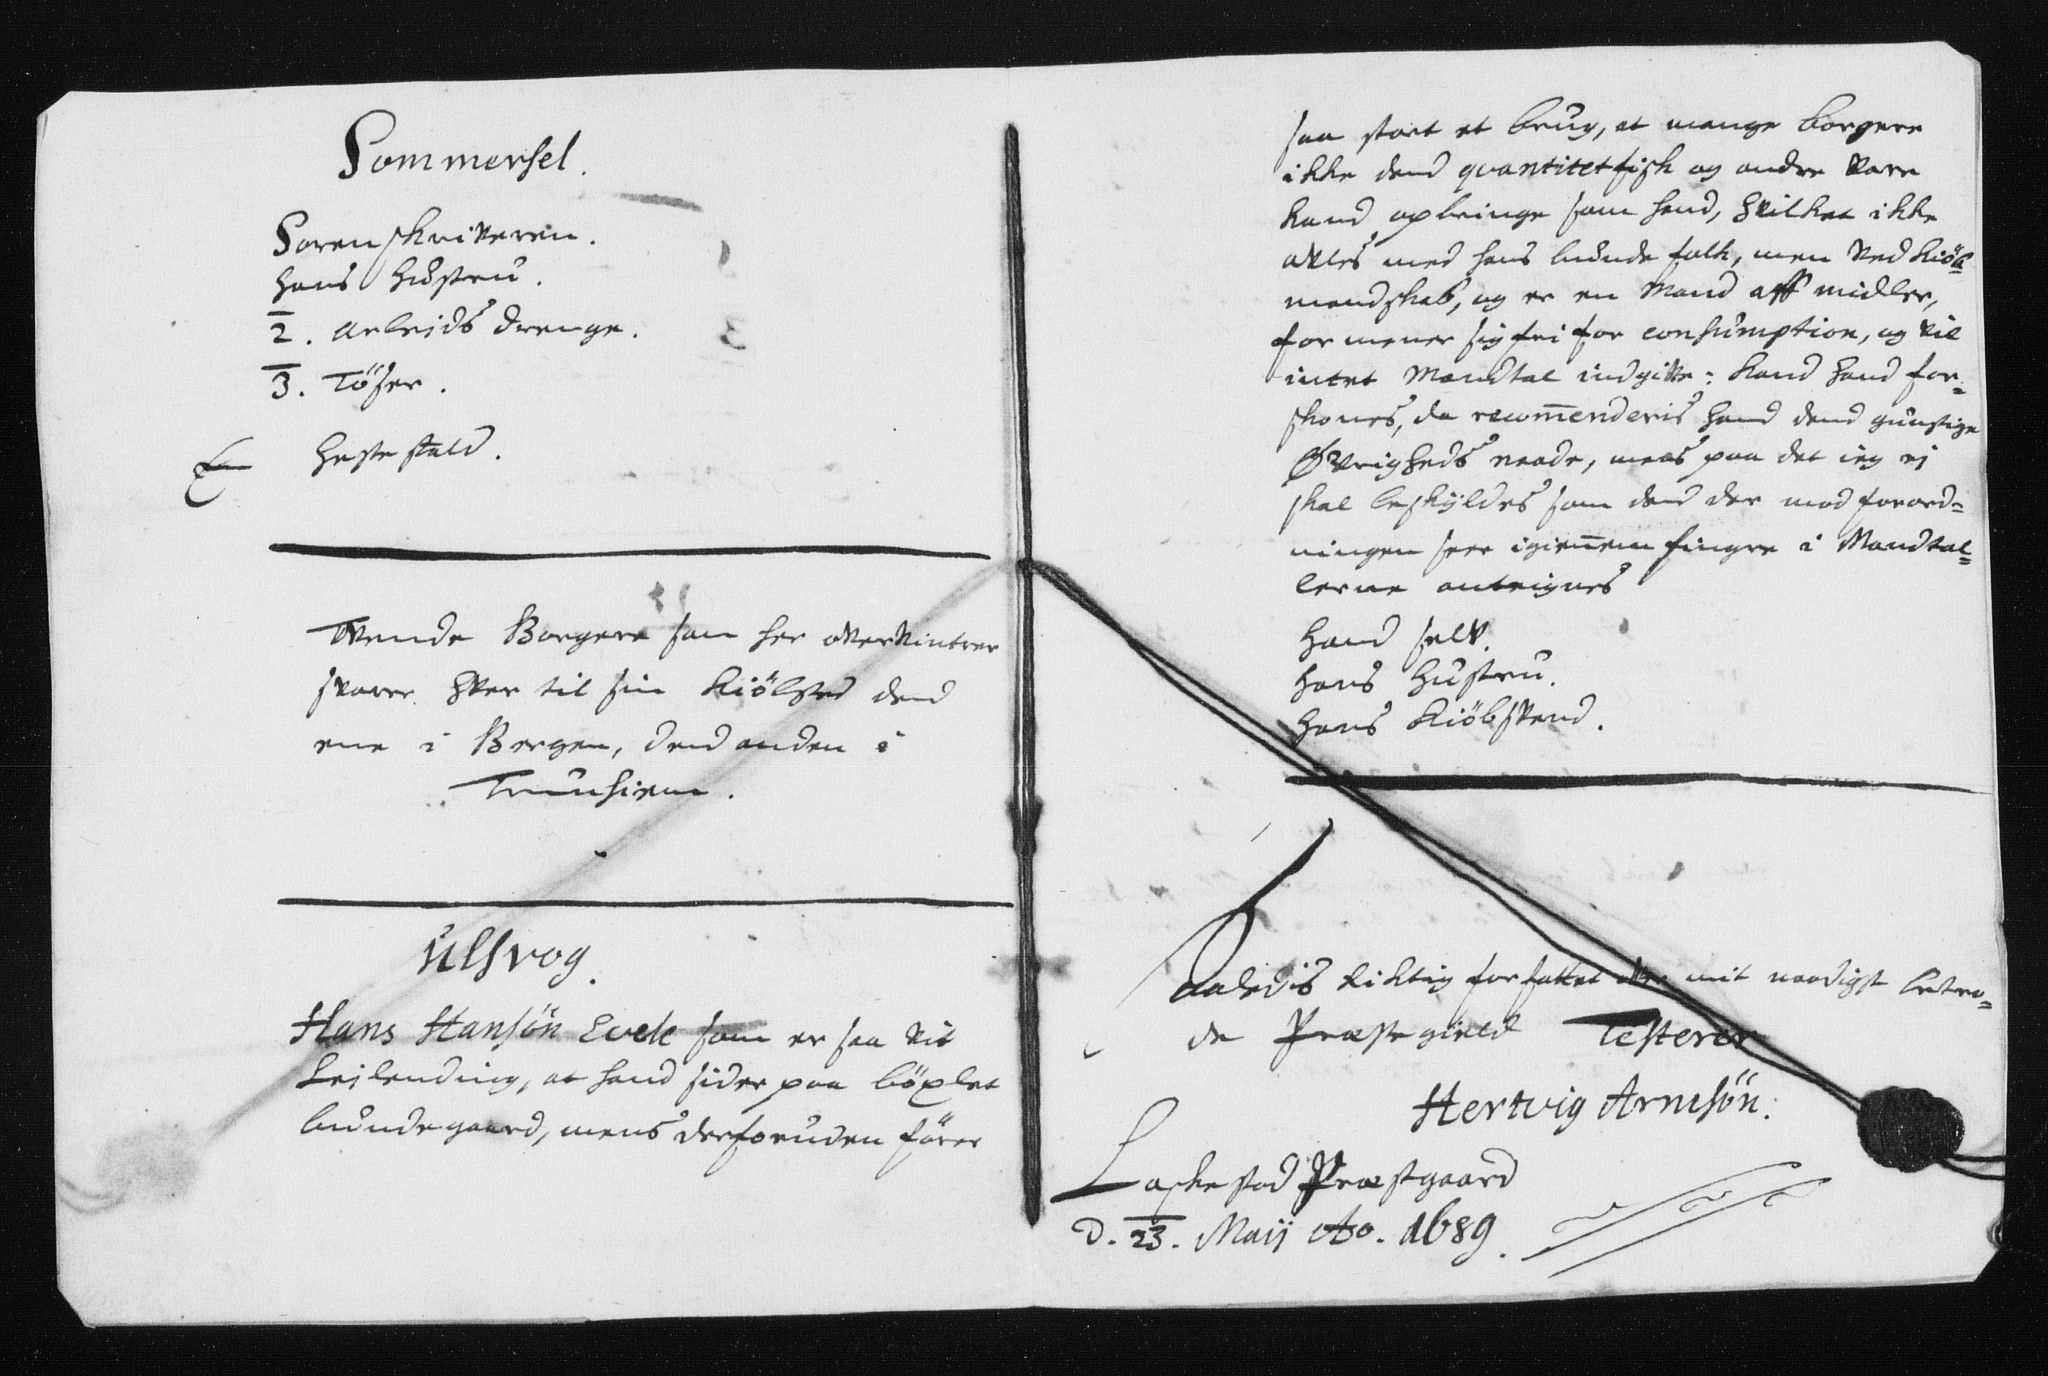 Sommersel.
Sorenskriveren.
Hans Hustru.
2. Arbeids Drenge.
3. Töser.
En Hestestald.
Tvende Borgere som her overvintrer
svarer hver til sin Kiöbsted dend
ene i Bergen, dend anden i
Trunhiem.
Ulsvog.
Hans Hansön som er saa vit
Leilending, at hand sider paa böxlet
bundegaard, mens derforuden förer
saa stort et brug, at mange borgere
ikke dend qvantitet fisk og andre vare
kand opbringe som hand, hvilket ikke
avles med hans bunde folk, men ved Kiöb=
mandskab, og er en Mand aff midler,
formener sig fri for consumption, og vil
intet Mandtal indgive: kand hand for=
skones, da recom̅enderis hand dend gunstige
Øvrigheds naade, mens paa det ieg ej
skal beskyldes som dend der mod forord=
ningen seer igien̅em fingre i Mandtal=
lerne anteignes
Hand selv.
Hans Hustru.
Hans Kiöbsvend.
Saaledis riktig forfattet over mit naadigst betro=
de Præstegield Testerer
Hertvig Arnesön.
Laskestad Præstgaard
D. 23. Maij Ao. 1689.